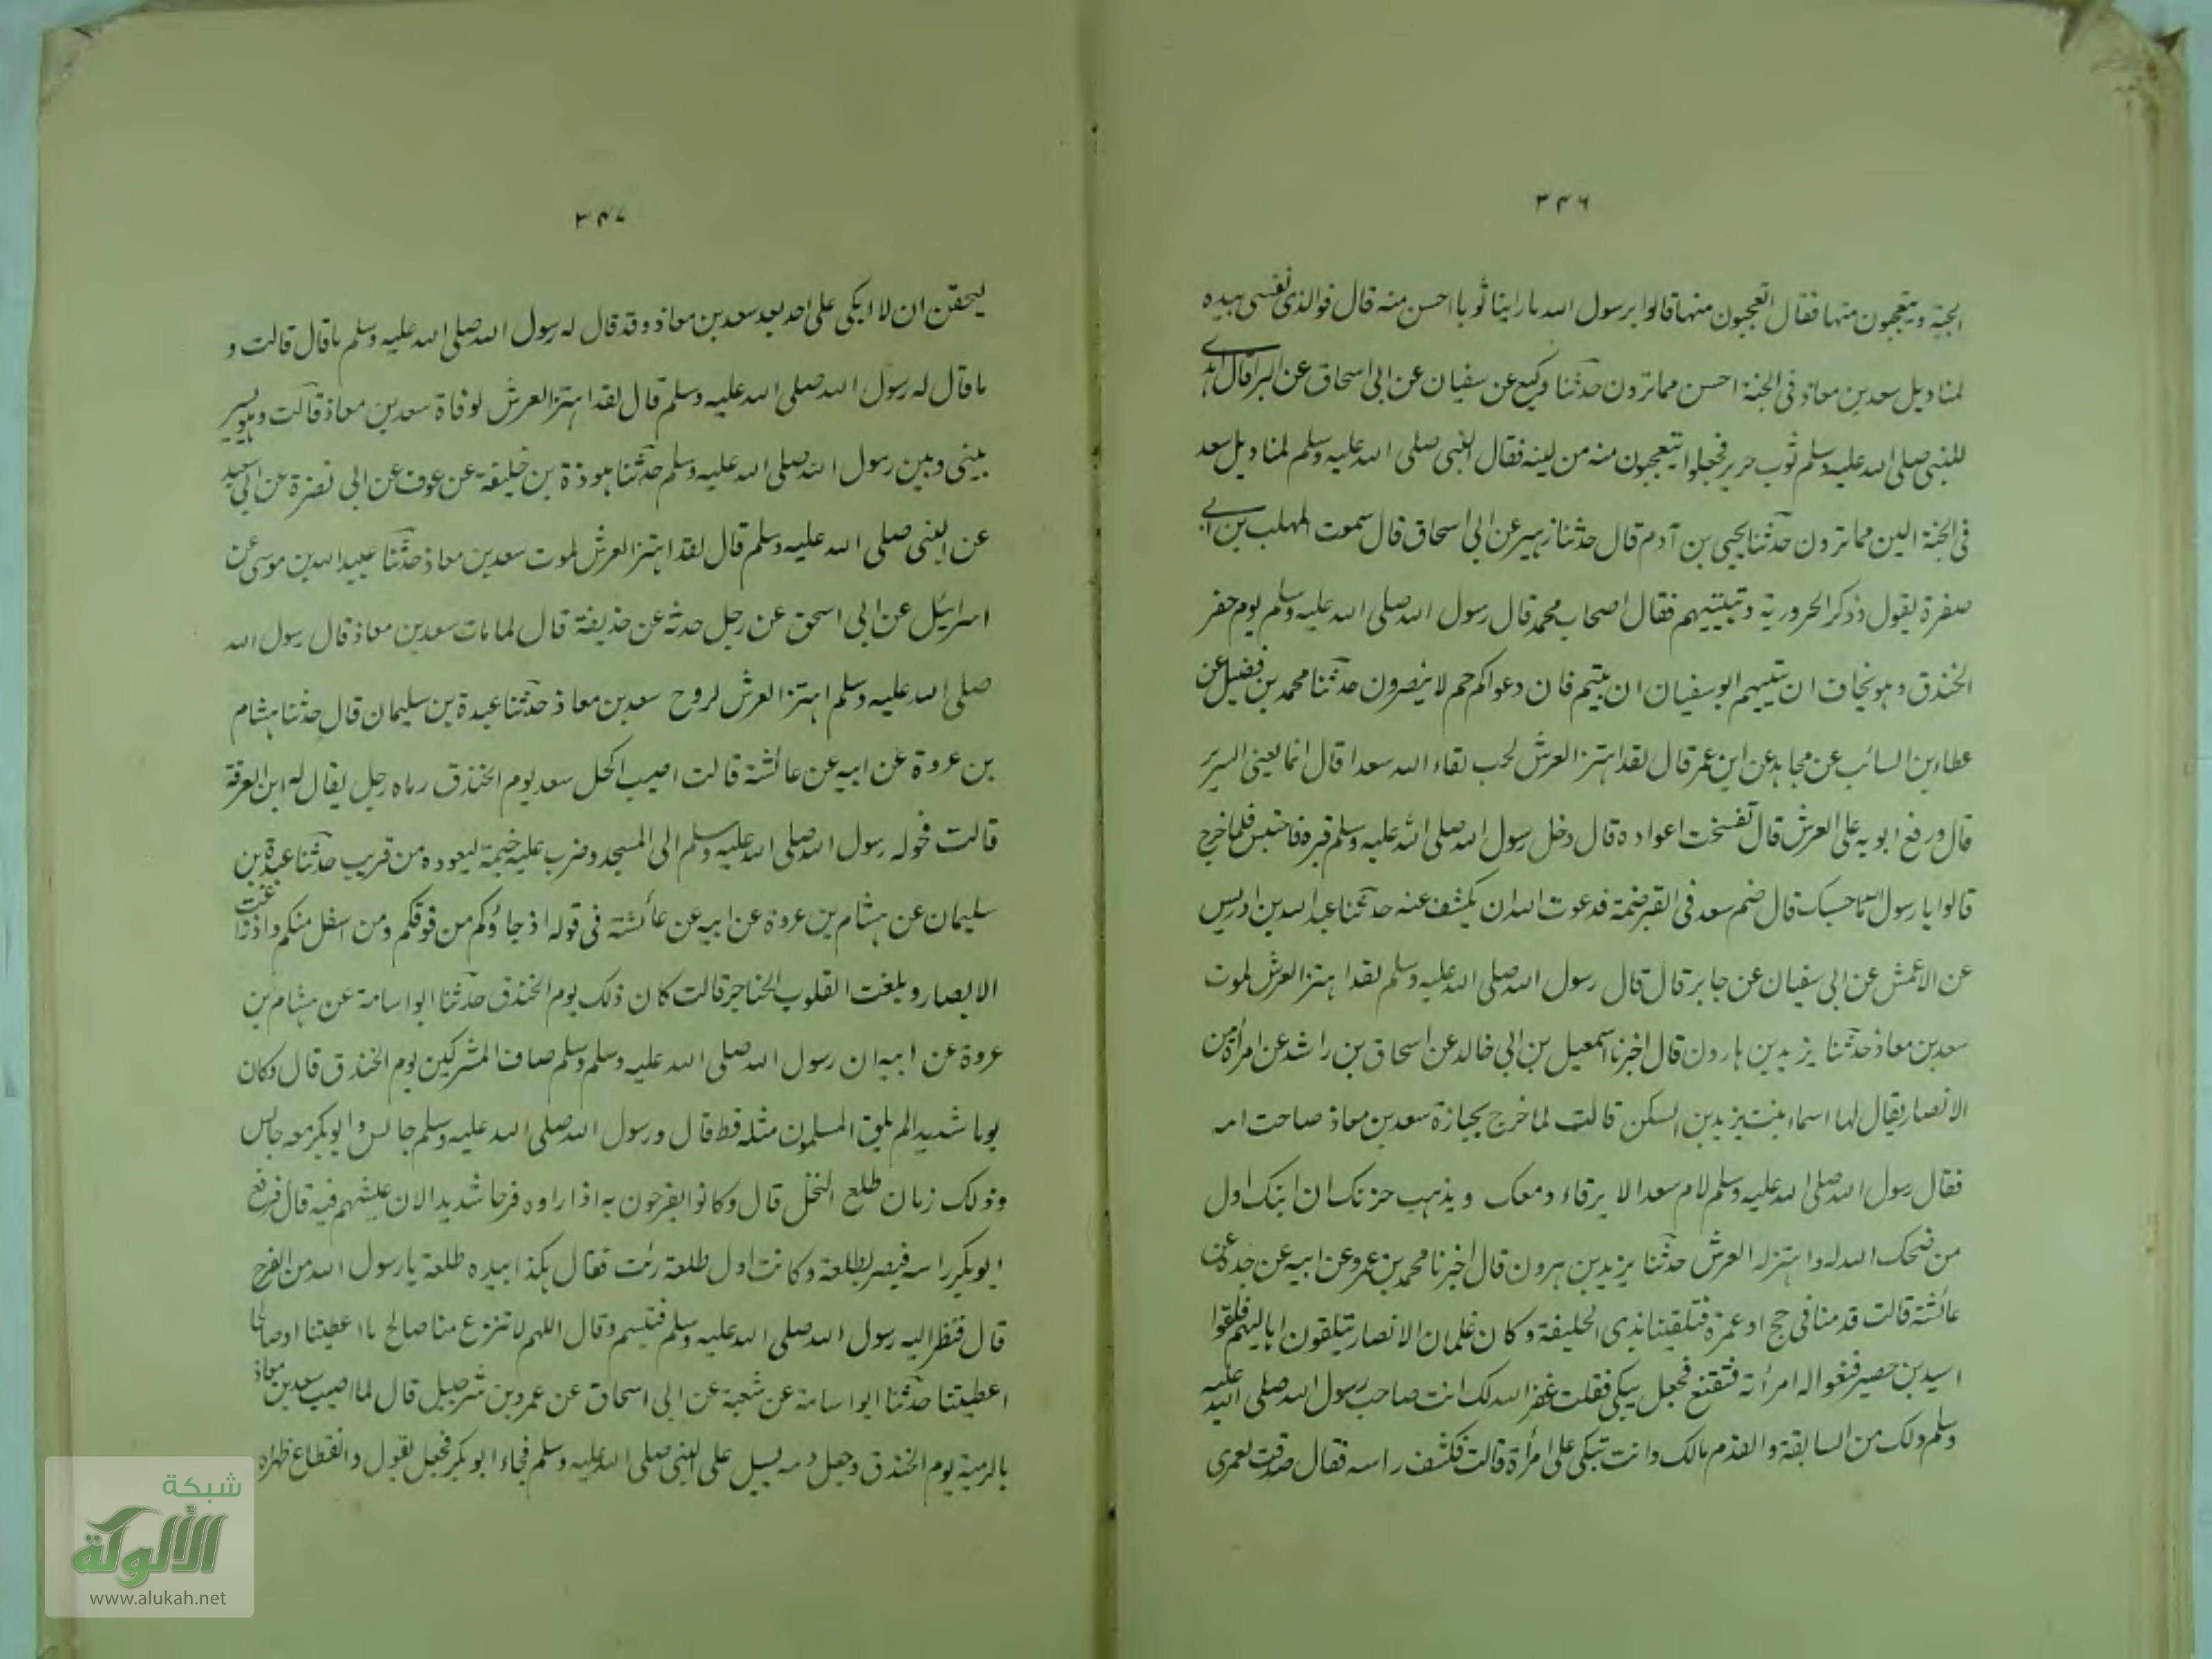 ٣٤٦
الجبة ويتعجبون منها فقال اتعجبون منها قالوا يرسول الله ما راينا ثوبا احسن منه قال فوالذى نفسى بيده
لمناديل سعد بن معاذ فى الجنة احسن مما ترون حدثنا وكيع عن سفيان عن ابى اسحاق عن البرا قال اهدى
للنبى صلى الله عليه وسلم ثوب حرير فجعلوا يتعجبون منه من لينه فقال النبى صلى الله عليه وسلم لمناديل سعد
فى الجنة الين مما ترون حدثنا يحيى بن آدم قال حدثنا زهير عن ابى اسحاق قال سمعت المهلب بن ابى
صفرة يقول وذكر الحرورية وتبييتهم فقال اصحاب محمد قال رسول الله صلى الله عليه وسلم يوم حفر
الخندق وهو يخاف ان يبيتهم ابو سفيان ان بيتم فان دعواكم حم لا ينصرون حدثنا محمد بن فضيل عن
عطاء بن السائب عن مجاهد عن ابن عمر قال لقد اهتز العرش لحب لقاء الله سعدا قال انما يعنى السرير
قال ورفع ابويه على العرش قال تفسخت اعواده قال دخل رسول الله صلى الله عليه وسلم قبره فاحتبس فلما خرج
قالوا يا رسول الله ما حبسك قال ضم سعد فى القبر ضمة فدعوت الله ان يكشف عنه حدثنا عبد الله بن ادريس
عن الاعمش عن ابى سفيان عن جابر قال قال رسول الله صلى الله عليه وسلم لقد اهتز العرش لموت
سعد بن معاذ حدثنا يزيد بن هارون قال اخبرنا اسمعيل بن ابى خالد عن اسحاق بن راشد عن امرأة من
الانصار يقال لها اسماء بنت يزيد بن السكن قالت لما خرج بجنازة سعد بن معاذ صاحت امه
فقال رسول الله صلى الله عليه وسلم لام سعد الا يرقاء دمعك ويذهب حزنك ان ابنك اول
من ضحك الله له واهتز له العرش حدثنا يزيد بن هرون قال اخبرنا محمد بن عمرو عن ابيه عن جده عن
عائشة قالت قدمنا فى حج او عمرة فتلقينا بذى الحليفة وكان غلمان الانصار يتلقون اهاليهم فلقوا
اسيد بن حضير فنعوا له امرأته فتقنع فجعل يبكى فقلت غفر الله لك انت صاحب رسول الله صلى الله عليه
وسلم ولك من السابقة والقدم مالك وانت تبكى على امرأة قالت فكشف راسه فقال صدقت لعمرى
٣٤٧
ليحقن ان لا ابكى على احد بعد سعد بن معاذ وقد قال له رسول الله صلى الله عليه وسلم ما قال قالت و
ما قال له رسول الله صلى الله عليه وسلم قال لقد اهتز العرش لوفاة سعد بن معاذ قالت وهو يسير
بينى وبين رسول الله صلى الله عليه وسلم حدثنا هوذة بن خليفة عن عوف عن ابى نضرة عن ابى سعيد
عن النبى صلى الله عليه وسلم قال لقد اهتز العرش لموت سعد بن معاذ حدثنا عبيد الله بن موسى عن
اسرائيل عن ابى اسحق عن رجل حدثه عن حذيفة قال لما مات سعد بن معاذ قال رسول الله
صلى الله عليه وسلم اهتز العرش لروح سعد بن معاذ حدثنا عبدة بن سليمان قال حدثنا هشام
بن عروة عن ابيه عن عائشة قالت اصيب اكحل سعد يوم الخندق رماه رجل يقال له ابن العرقة
قالت فحوله رسول الله صلى الله عليه وسلم الى المسجد وضرب عليه خيمة ليعوده من قريب حدثنا عبدة بن
سليمان عن هشام بن عروة عن ابيه عن عائشة فى قوله اذ جاؤكم من فوقكم ومن اسفل منكم واذ زاغت
الابصار وبلغت القلوب الحناجر قالت كان ذلك يوم الخندق حدثنا ابو اسامة عن هشام بن
عروة عن ابيه ان رسول الله صلى الله عليه وسلم وسلم صاف المشركين يوم الخندق قال وكان
يوما شديدا لم يلق المسلمون مثله قط قال ورسول الله صلى الله عليه وسلم جالس وابو بكر معه جالس
وذلك زمان طلع النخل قال وكانوا يفرحون به اذا راوه فرحا شديدا لان عيشهم فيه قال فرفع
ابو بكر راسه فبصر بطلعة وكانت اول طلعة رئت فقال هكذا بيده طلعة يا رسول الله من الفرح
قال فنظر اليه رسول الله صلى الله عليه وسلم فتبسم وقال اللهم لا تنزع منا صالح ما اعطيتنا او صالحا
اعطيتنا حدثنا ابو اسامة عن شعبة عن ابى اسحاق عن عمرو بن شرحبيل قال لما اصيب سعد بن معاذ
بالرمية يوم الخندق وجعل دمه يسيل على النبى صلى الله عليه وسلم فجاء ابو بكر فجعل يقول وانقطاع ظهراه
شبكة
الألوكة
www.alukah.net